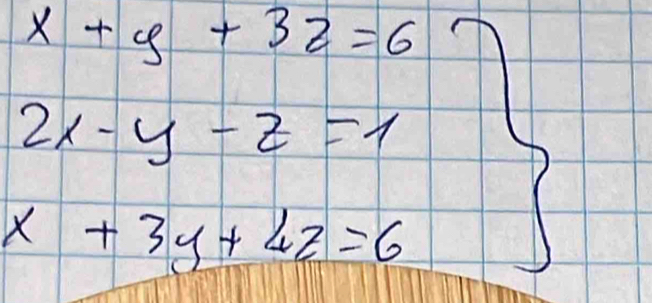 x + y + 3z = 6
2x - y - z = 1
x + 3y + 4z = 6